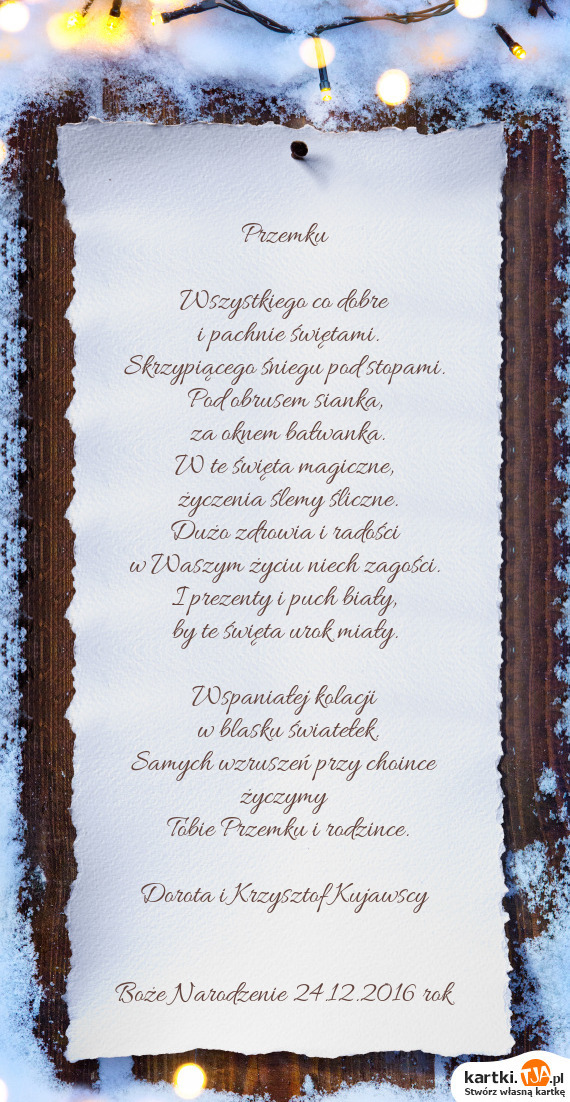 Przemku
Wszystkiego co dobre
i pachnie świętami.
Skrzypiącego śniegu pod stopami.
Pod obrusem sianka,
za oknem bałwanka.
W te święta magiczne,
życzenia ślemy śliczne.
Dużo zdrowia i radości
w Waszym życiu niech zagości.
I prezenty i puch biały,
by te święta urok miały.
Wspaniałej kolacji
w blasku światełek,
Samych wzruszeń przy choince
życzymy
Tobie Przemku i rodzince.
Dorota i Krzysztof Kujawscy
Boże Narodzenie 24.12.2016 rok
kartki.TJA.pl
Stwórz własną kartkę